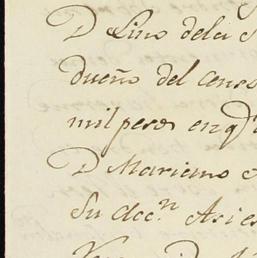 D Lino dela
dueño del censo
mil pesos enq.^e
D Mariano
Su acc.^n Asi es